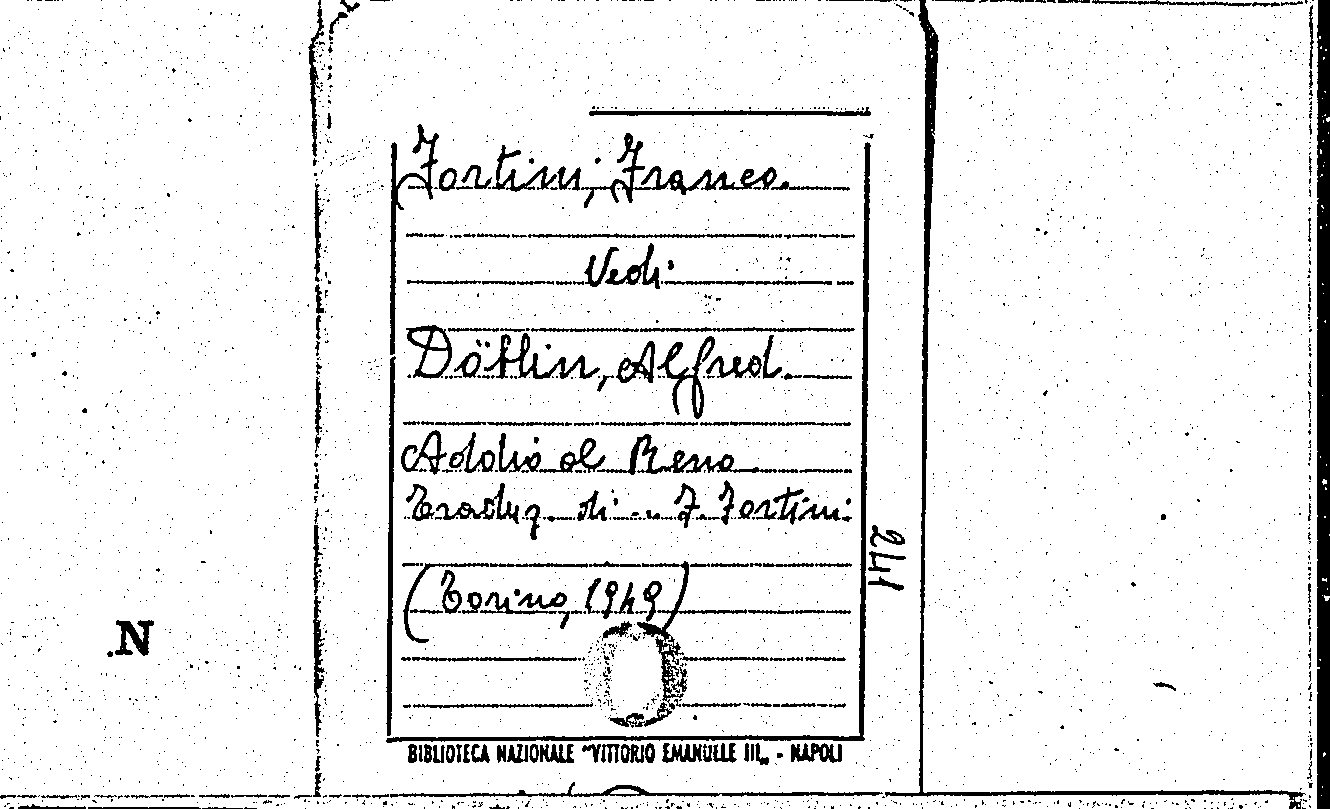 Fortini, Franco.
Vedi
Döblin, Alfred.
Addio al Reno.
Traduz. di ... F. Fortini.
(Torino, 1949)
241
N
BIBLIOTECA NAZIONALE "VITTORIO EMANUELE III„ - NAPOLI